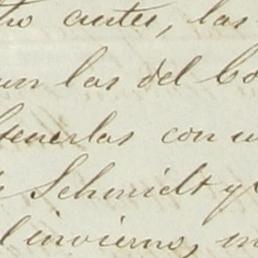 antes, las
las del Co
tenerlas con u
Schmidt y
l invierno, m